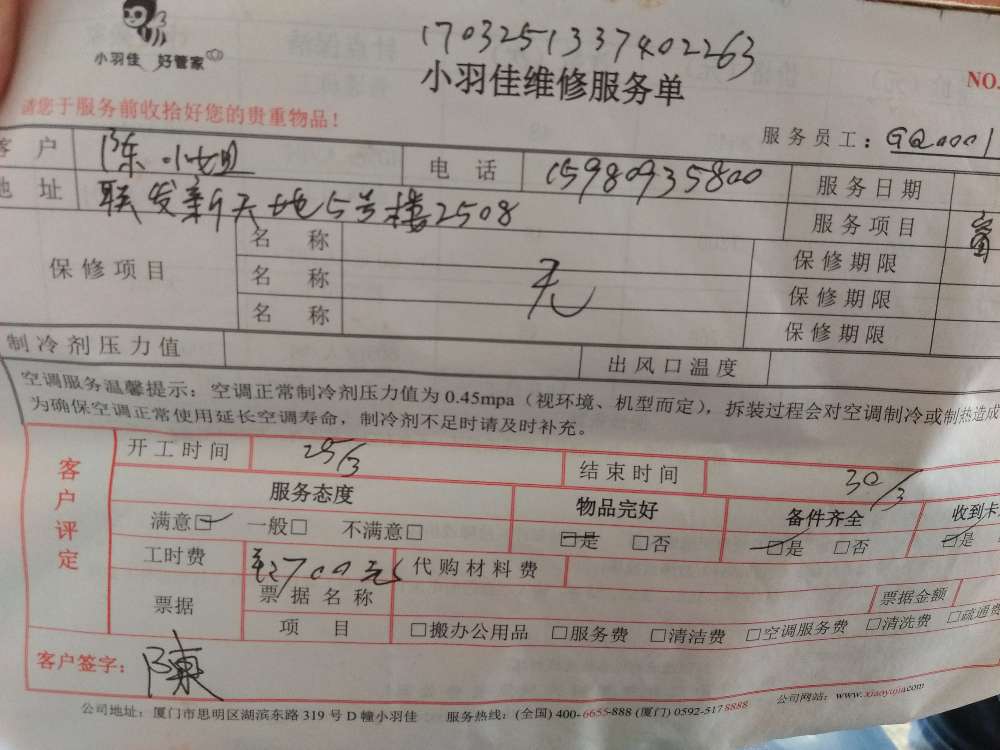 1703251337402263
小羽佳 好管家
小羽佳维修服务单
NO.
请您于服务前收拾好您的贵重物品！
服务员工：GQ0001
客 户 陈小姐 电 话 15980935800 服务日期
地 址 联发新天地5号楼2508 服务项目
保修项目 名 称 无 保修期限
名 称 保修期限
名 称 保修期限
制冷剂压力值 出风口温度
空调服务温馨提示：空调正常制冷剂压力值为 0.45mpa（视环境、机型而定），拆装过程会对空调制冷或制热造成
为确保空调正常使用延长空调寿命，制冷剂不足时请及时补充。
客户评定
开工时间 25/3 结束时间 30/3
服务态度 物品完好 备件齐全 收到卡
满意□ 一般□ 不满意□ □是 □否 □是 □否 □是
工时费 2700元 代购材料费
票据 票据名称 票据金额
项 目 □搬办公用品 □服务费 □清洁费 □空调服务费 □清洗费 □疏通费
客户签字：陳
公司地址：厦门市思明区湖滨东路 319 号 D 幢小羽佳 服务热线：(全国) 400-6655-888 (厦门) 0592-5178888 公司网站：www.xiaoyujia.com